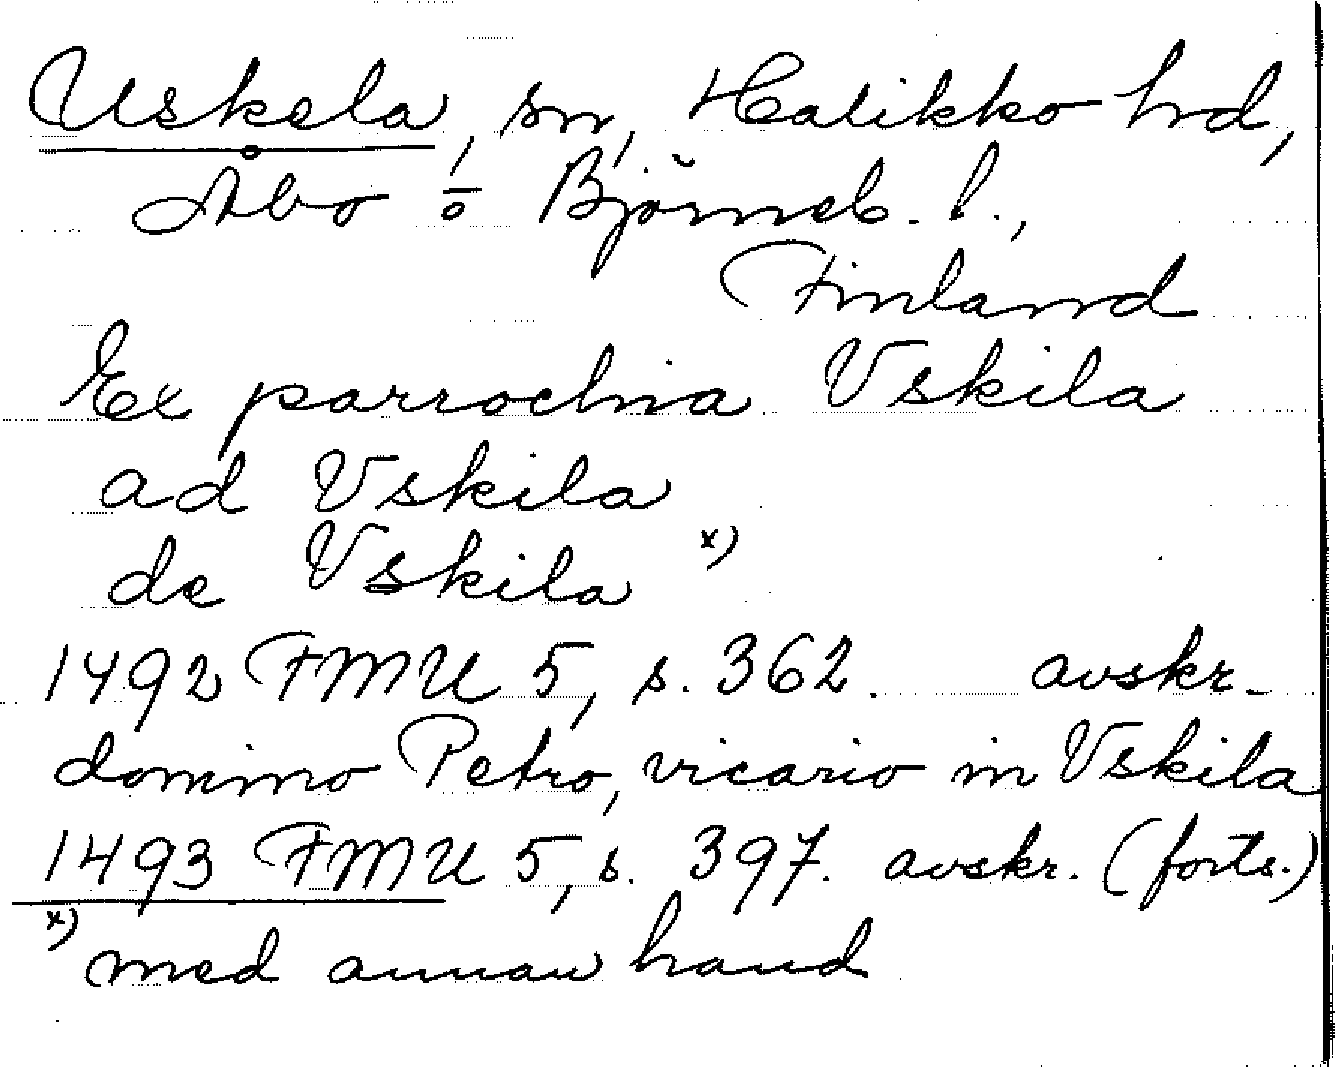 Uskela, sn, Halikko hrd,
Åbo o Björneb. l.,
Finland
Ex parrochia Vskila
ad Vskila
de Vskila x)
1492 FMU 5, s. 362. avskr.
domino Petro, vicario in Vskila
1493 FMU 5, s. 397. avskr. (forts.)
x) med annan hand